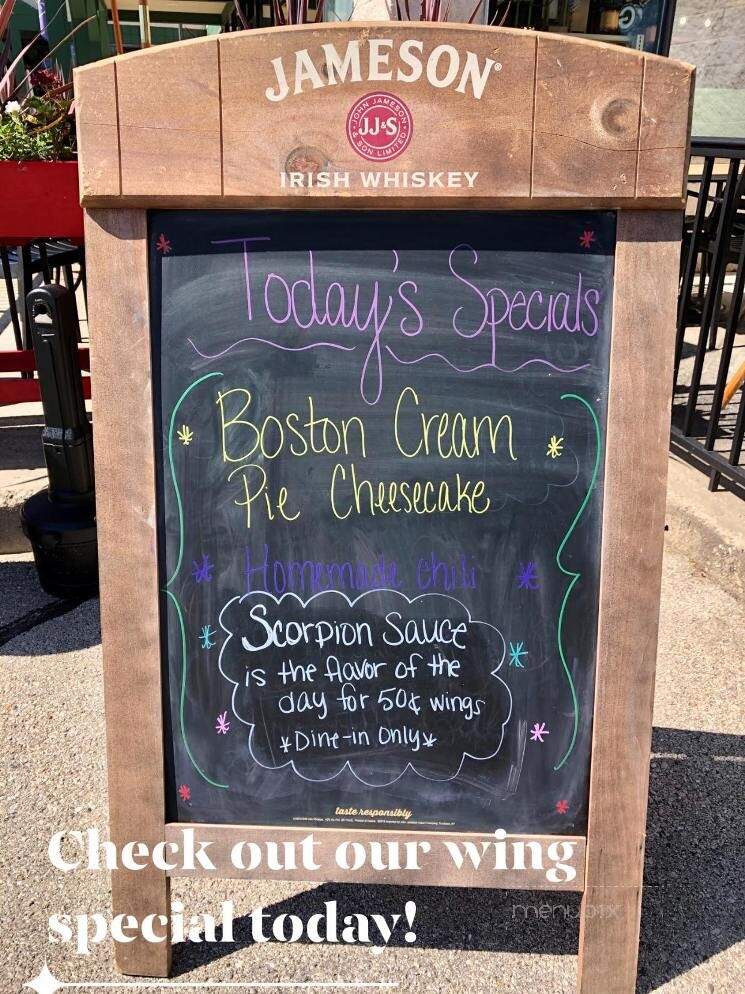 JAMESON®
JOHN JAMESON
JJ&S
& SON LIMITED
IRISH WHISKEY
Today's Specials
Boston Cream
Pie Cheesecake
Homemade chili
Scorpion Sauce
is the flavor of the
day for 50¢ wings
*Dine-in Only*
taste responsibly
Check out our wing
special today!
menupix